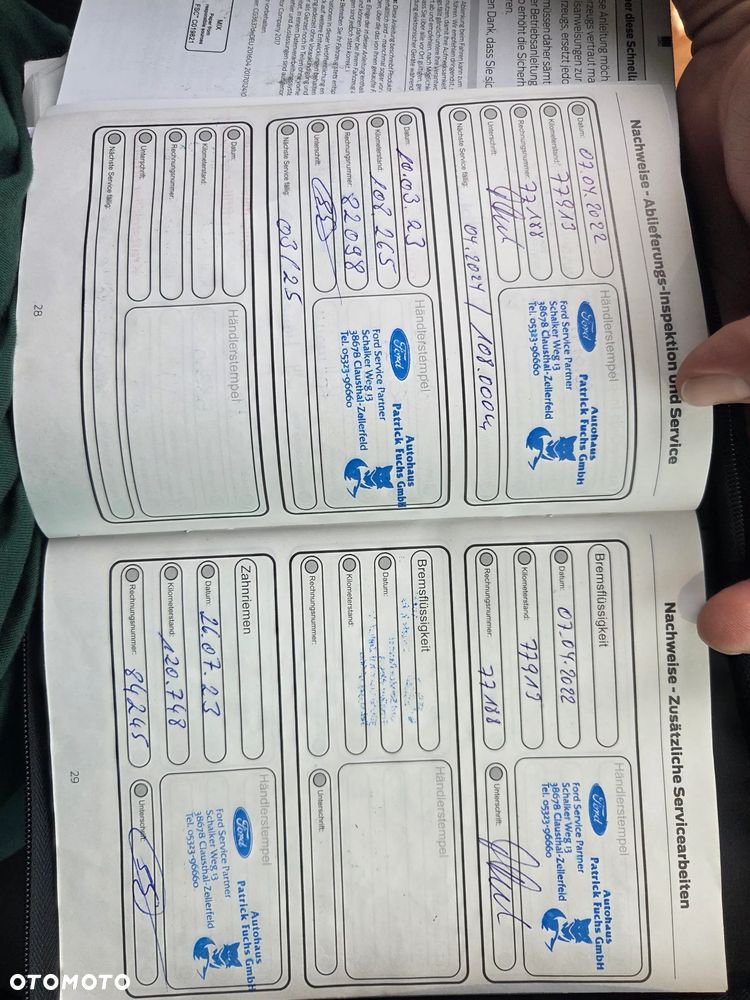 Nachweise - Ablieferungs-Inspektion und Service
Datum: 07.04.2022
Kilometerstand: 77913
Rechnungsnummer: 77188
Unterschrift:
Nächste Service fällig: 04.2024 / 108.000
Händlerstempel
Autohaus
Patrick Fuchs GmbH
Ford
Ford Service Partner
Schalker Weg 13
38678 Clausthal-Zellerfeld
Tel. 05323-96660
Datum: 20.03.23
Kilometerstand: 108.265
Rechnungsnummer: 82098
Unterschrift:
Nächste Service fällig: 03/25
Händlerstempel
Autohaus
Patrick Fuchs GmbH
Ford
Ford Service Partner
Schalker Weg 13
38678 Clausthal-Zellerfeld
Tel. 05323-96660
Datum:
Kilometerstand:
Rechnungsnummer:
Unterschrift:
Nächste Service fällig:
Händlerstempel
28
Nachweise - Zusätzliche Servicearbeiten
Bremsflüssigkeit
Datum: 07.04.2022
Kilometerstand: 77913
Rechnungsnummer: 77188
Händlerstempel
Autohaus
Patrick Fuchs GmbH
Ford
Ford Service Partner
Schalker Weg 13
38678 Clausthal-Zellerfeld
Tel. 05323-96660
Unterschrift:
Bremsflüssigkeit
Datum:
Kilometerstand:
Rechnungsnummer:
Händlerstempel
Unterschrift:
Zahnriemen
Datum: 26.07.23
Kilometerstand: 120.748
Rechnungsnummer: 84245
Händlerstempel
Autohaus
Patrick Fuchs GmbH
Ford
Ford Service Partner
Schalker Weg 13
38678 Clausthal-Zellerfeld
Tel. 05323-96660
Unterschrift:
29
MIX
OTOMOTO